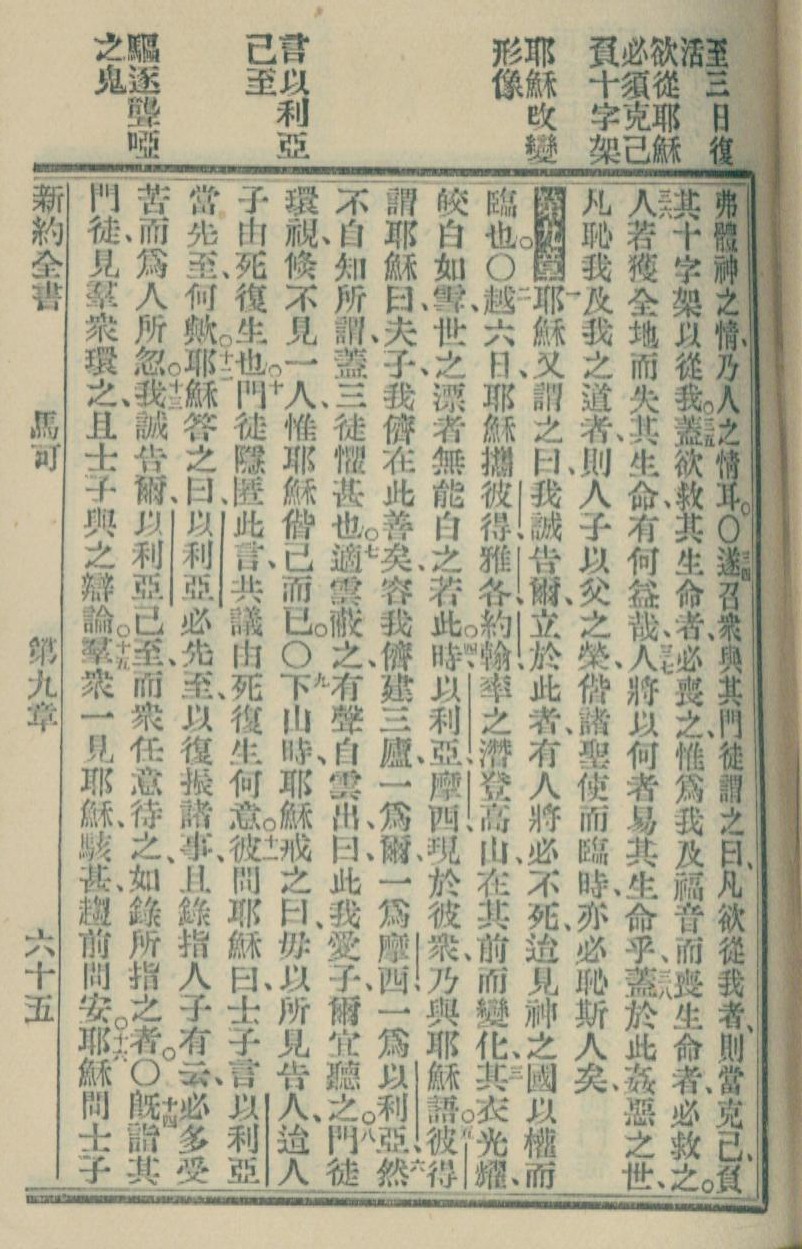 至三日復
活
欲從耶穌
必須克己
負十字架
耶穌改變
形像
言以利亞
已至
驅逐聾啞
之鬼
弗體神之情、乃人之情耳。〇三四遂召衆與其門徒謂之曰、凡欲從我者、則當克己、負
其十字架以從我。三五蓋欲救其生命者、必喪之、惟爲我及福音而喪生命者、必救之。
三六人若獲全地而失其生命、有何益哉、三七人將以何者易其生命乎、三八蓋於此姦惡之世、
凡恥我及我之道者、則人子以父之榮、偕諸聖使而臨時、亦必恥斯人矣、
第九章一耶穌又謂之曰、我誠告爾、立於此者、有人將必不死、迨見神之國以權而
臨也。〇二越六日、耶穌攜彼得、雅各、約翰、率之潛登高山、在其前而變化、三其衣光耀、
皎白如雪、世之漂者、無能白之若此。四時以利亞、摩西、現於彼衆、乃與耶穌語。五彼得
謂耶穌曰、夫子、我儕在此善矣、容我儕建三廬、一爲爾、一爲摩西、一爲以利亞、六然
不自知所謂、蓋三徒懼甚也。七適雲蔽之、有聲自雲出、曰、此我愛子、爾宜聽之。八門徒
環視、倏不見一人、惟耶穌偕己而已。〇九下山時、耶穌戒之曰、毋以所見告人、迨人
子由死復生也。十門徒隱匿此言、共議由死復生何意。十一彼問耶穌曰、士子言以利亞
當先至、何歟。十二耶穌答之曰、以利亞必先至、以復振諸事、且錄指人子有云、必多受
苦而爲人所忽。十三我誠告爾、以利亞已至、而衆任意待之、如錄所指之者。〇十四旣詣其
門徒、見羣衆環之、且士子與之辯論。十五羣衆一見耶穌、駭甚、趨前問安。十六耶穌問士子
新約全書 馬可 第九章 六十五